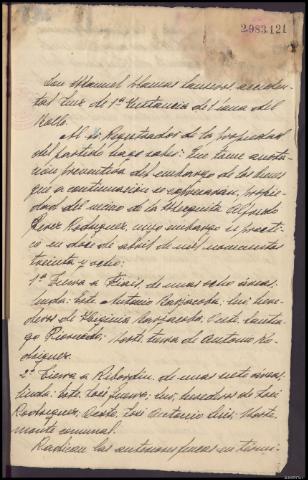 2983.121
Don Manuel Mamas
tal Juez de 1ª Instancia de Viana del
Bollo.
Al Sr. Registrador de la propiedad
del partido hago saber: Que tome anota-
ción preventiva del embargo de los bienes
que a continuación se expresarán, propie-
dad del vecino de la Mezquita Alfredo
Perez Rodriguez, cuyo embargo se practi-
có en doce de abril de mil novecientos
treinta y ocho:
1ª Tierra a de unas ocho áreas,
linda: Este Antonio Sur here-
deros de Higinia Oeste, Santia-
go Norte tierra de Antonio Ro-
driguez.
2ª Tierra a Ribordin de unas siete áreas,
linda: Este, José Sur, herederos de José
Rodriguez, Oeste, José Antonio Norte
monte comunal.
Radican las anteriores fincas en térmi-